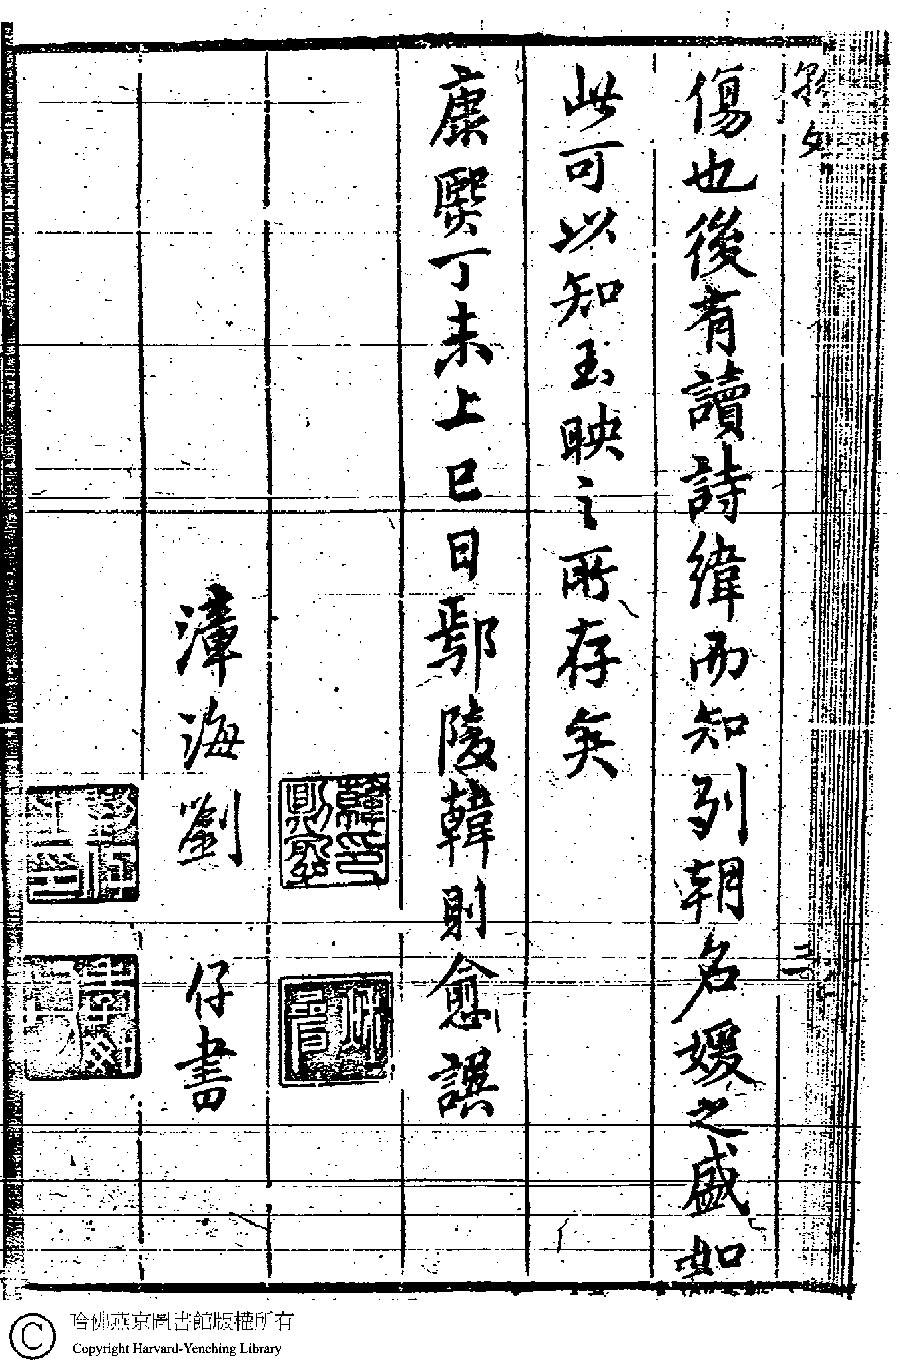 傷也後有讀詩緯而知列朝名媛之盛如
此可以知玉映之所存矣
康熙丁未上巳日鄢陵韓則愈譔
韓則愈印
漳海劉 仔書
哈佛燕京圖書館版權所有
Copyright Harvard-Yenching Library